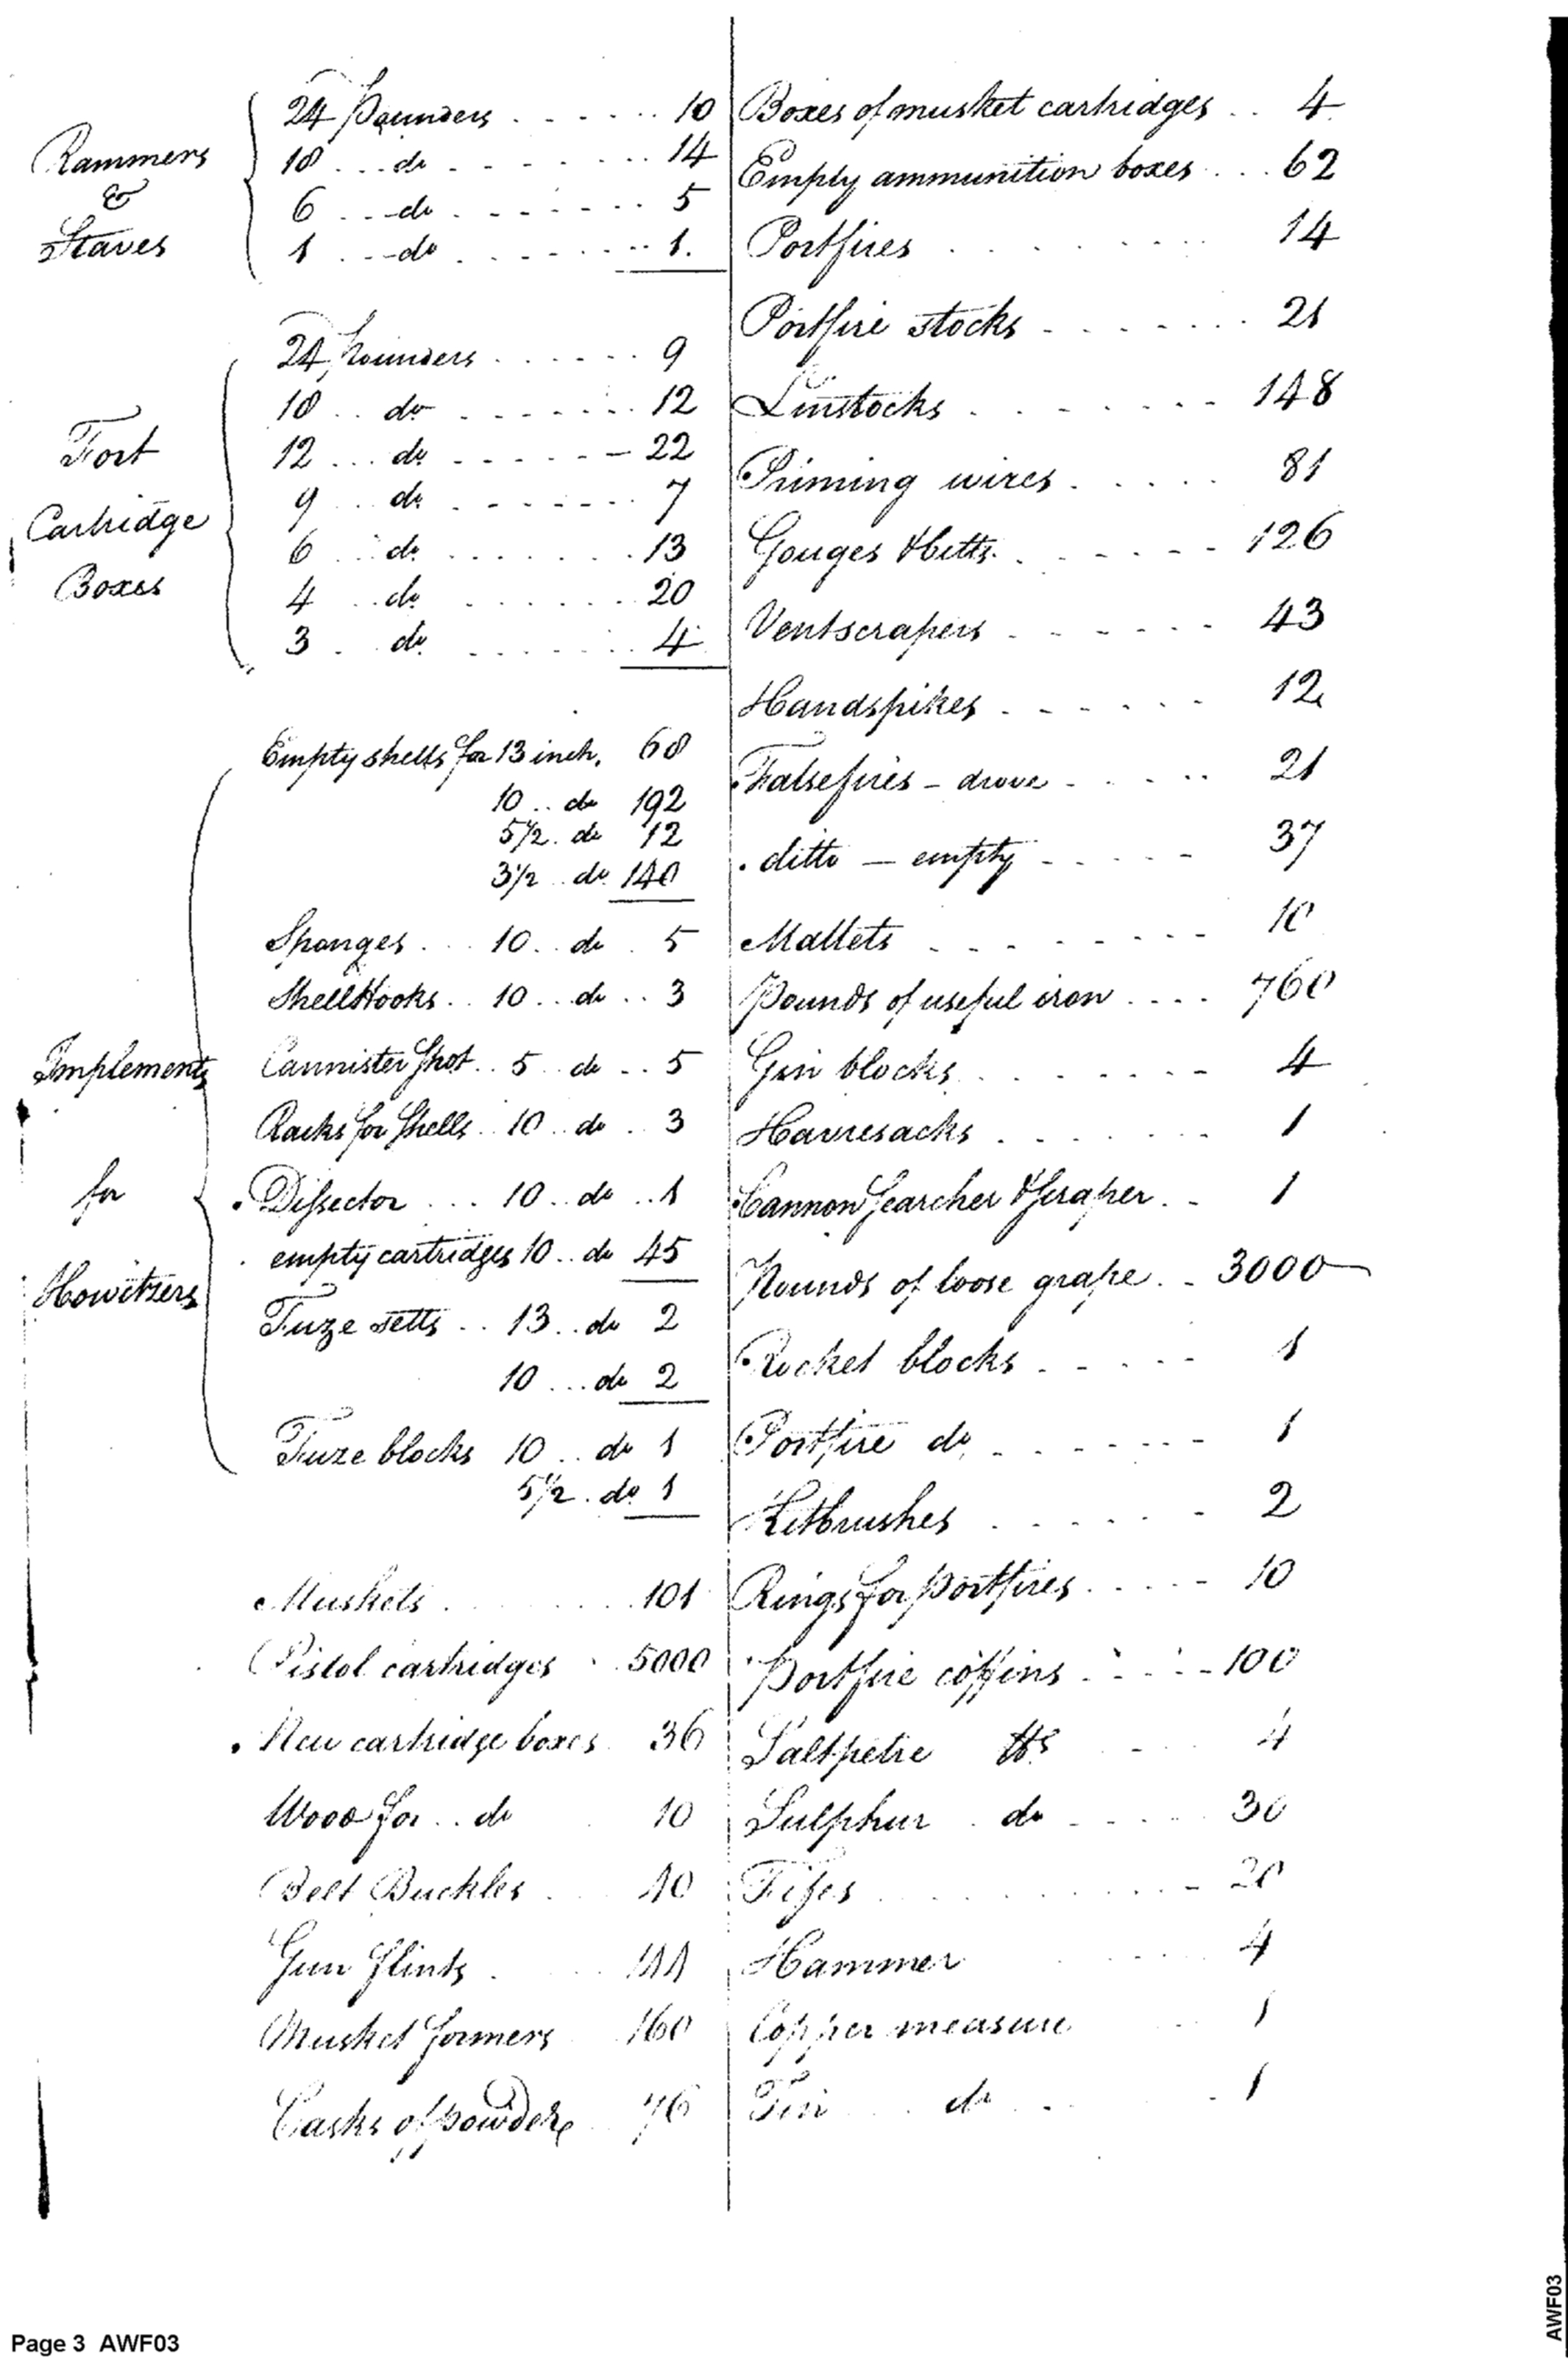 Rammers
&
Staves
24 Pounders . . . . . . 10
18 . . . do . . . . . . . 14
6 . . . do . . . . . . . 5
1 . . . do . . . . . . . 1.
Fort
Cartridge
Boxes
24 Pounders . . . . . . 9
18 . . do . . . . . . . 12
12 . . . do . . . . . . 22
9 . . do . . . . . . . 7
6 . . do . . . . . . . 13
4 . . do . . . . . . . 20
3 . do . . . . . . . 4
Implements
for
Howitzers
Empty shells for 13 inch, 68
10 . . do 192
5 1/2 . do 12
3 1/2 . . do 140
Sponges . . . 10 . . do . 5
Shell Hooks . . 10 . . . do . . 3
Cannister Shot . . 5 . . do . . 5
Racks for Shells . . 10 . . do . 3
Dissector . . . 10 . . do . . 1
empty cartridges 10 . . do 45
Fuze setts . . 13 . . do 2
10 . . . do 2
Fuze blocks 10 . . do 1
5 1/2 . do 1
Muskets . . . . . . 101
Pistol cartridges . . 5000
New cartridge boxes 36
Wood for . . do 10
Belt Buckles . . 10
Gun flints . . .
Musket formers 160
Casks of powder 76
Boxes of musket cartridges . . 4
Empty ammunition boxes . . . 62
Portfires . . . . . . . 14
Portfire stocks . . . . . . . 21
Linstocks . . . . . . . 148
Priming wires . . . . . 81
Gouges & bitts . . . . . . 126
Ventscrapers . . . . . . 43
Handspikes . . . . . . 12
Falsefires - drove . . . . . 21
ditto — empty . . . . . 37
Mallets . . . . . . . . 10
Pounds of useful iron . . . . 760
Gin blocks . . . . . . . 4
Havresacks . . . . . . 1
Cannon Searcher & Scraper . . 1
Rounds of loose grape . . 3000
Rocket blocks . . . . . 1
Portfire do . . . . . . 1
Kitbrushes . . . . . . 2
Rings for Portfires . . . . . 10
Portfire coffins . . . . . 100
Saltpetre lbs . . . 4
Sulphur . do . . . . 30
Fifes . . . . . . . . 20
Hammer . . . . 4
Copper measure . . 1
Tin . . do . . . 1
Page 3 AWF03
AWF03